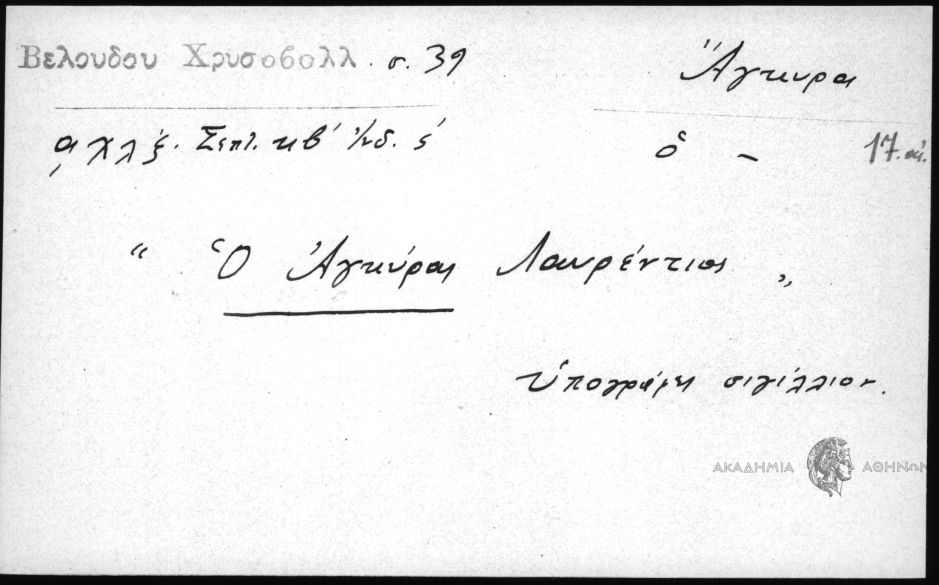 Βελουδου Χρυσοβολλ. σ. 39
Ἄγκυρα
͵αχλξ. Σεπτ. κβ' Ἰνδ. ς'
ὁ – 17. αἰ.
" Ὁ Ἀγκύρας Λαυρέντιος "
ὑπογράφει σιγίλλιον.
ΑΚΑΔΗΜΙΑ ΑΘΗΝΩΝ